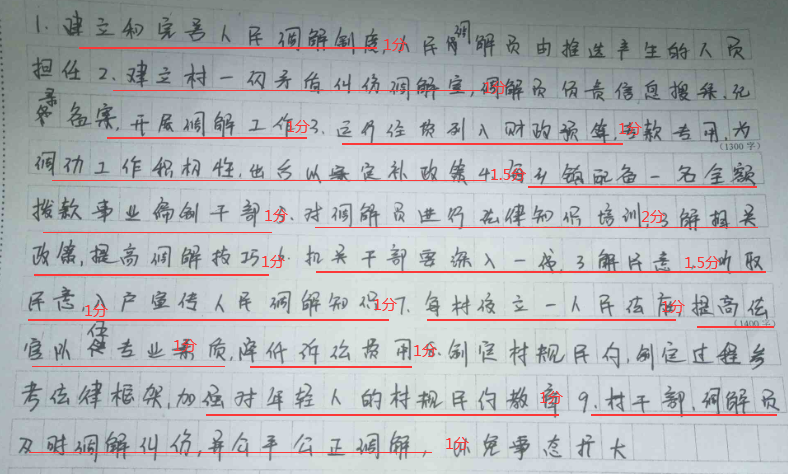 1.建立和完善人民调解制度,人民调解员由推选产生的人员
担任2.建立村一级矛盾纠纷调解室,调解员负责信息搜集、记
录备案,开展调解工作3.运行经费列入财政预算,专款专用,为
调动工作积极性,出台以案定补政策4.每乡镇配备一名全额
拨款事业编制干部5.对调解员进行法律知识培训,了解相关
政策,提高调解技巧6.机关干部要深入一线,了解民意,听取
民意,入户宣传人民调解知识7.每村设立一人民法庭,提高法
官队伍专业素质,降低诉讼费用8.制定村规民约,制定过程参
考法律框架,加强对年轻人的村规民约教育9.村干部、调解员
及时调解纠纷,并公平公正调解,以免事态扩大
1分
1分
1分
1分
1.5分
1分
2分
1分
1.5分
1分
1分
1分
1分
1分
1分
1分
(1300字)
(1400字)